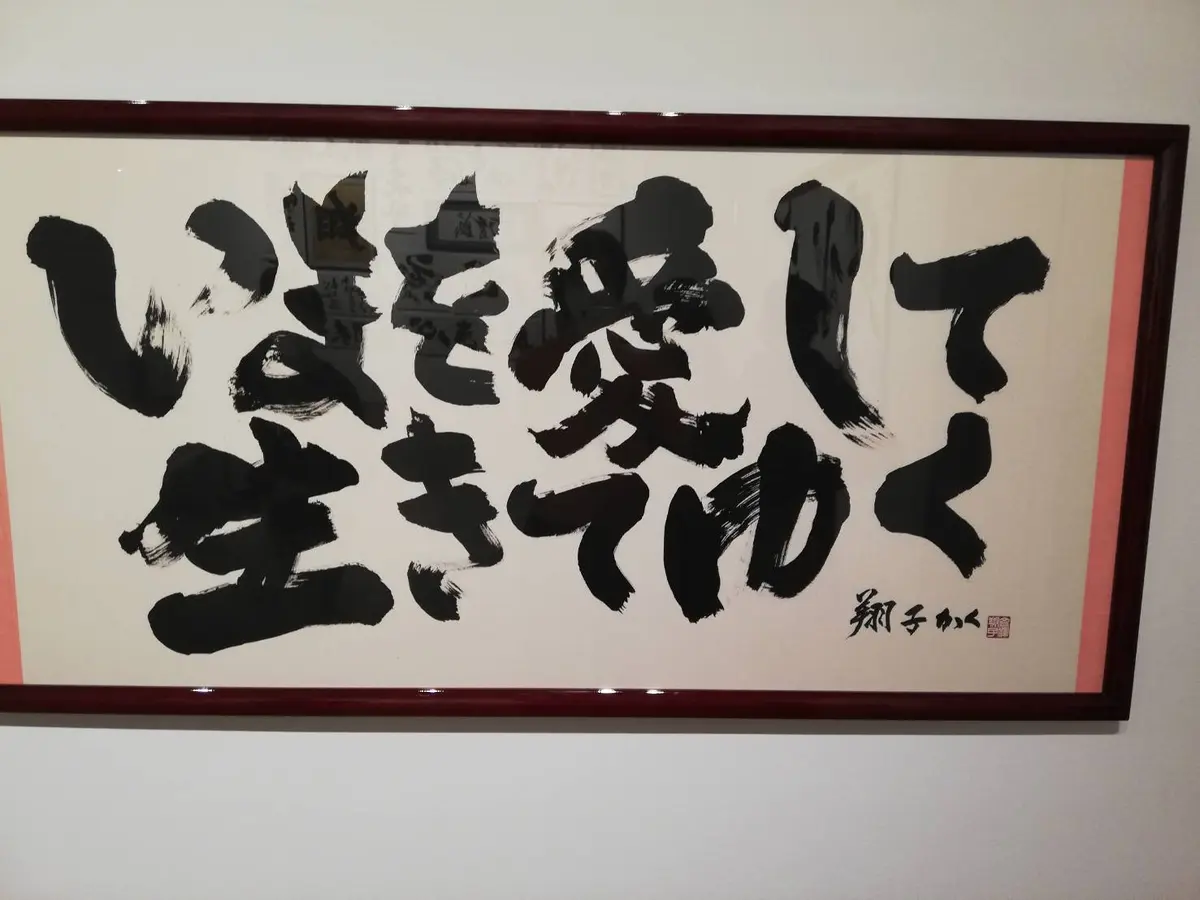 いまを愛して
生きてゆく
翔子かく